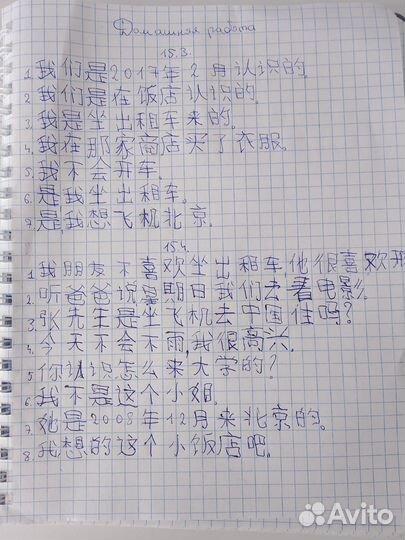 Домашняя работа
15.3.
1. 我们是2017年2月认识的。
2. 我们是在饭店认识的。
3. 我是坐出租车来的。
4. 我在那家商店买了衣服。
5. 我不会开车。
6. 是我坐出租车。
7. 是我想飞机北京。
15.4.
1. 我朋友不喜欢坐出租车,他很喜欢开
2. 听爸爸说星期日我们去看电影。
3. 张先生是坐飞机去中国住吗?
4. 今天不会不雨,我很高兴。
5. 你认识怎么来大学的?
6. 我不是这个小姐。
7. 她是2008年12月来北京的。
8. 我想的这个小饭店吧。
Avito